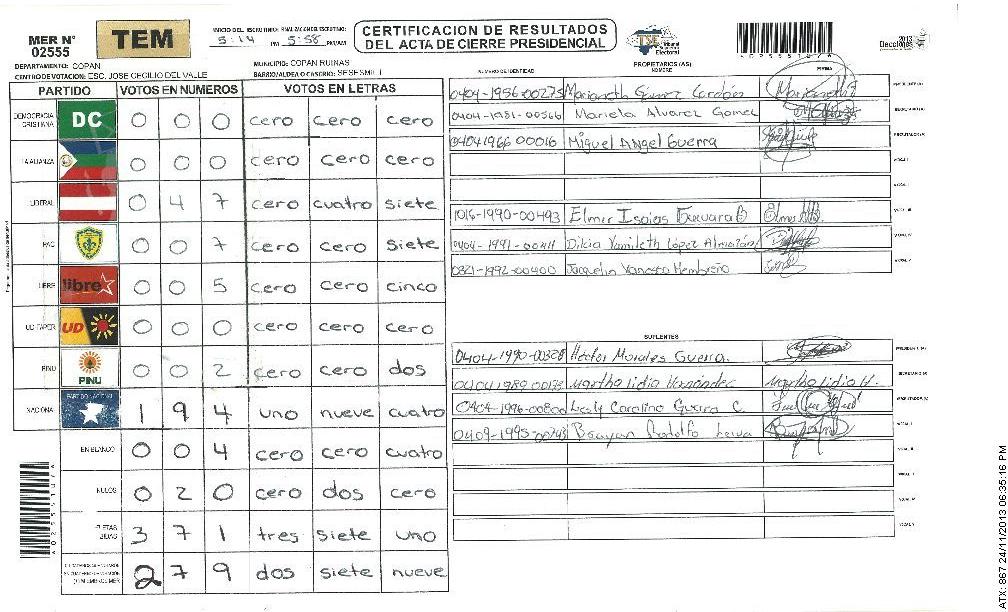 MER N° 02555
TEM
INICIO DEL ESCRUTINIO: FINALIZACION DEL ESCRUTINIO:
5:14 PM 5:58 PM/AM
CERTIFICACION DE RESULTADOS
DEL ACTA DE CIERRE PRESIDENCIAL
TSE Tribunal Supremo Electoral
2013
Elecciones
DEPARTAMENTO: COPAN
MUNICIPIO: COPAN RUINAS
CENTRO DE VOTACION: ESC. JOSE CECILIO DEL VALLE
BARRIO/ALDEA O CASERIO: SESESMIL I
PARTIDO VOTOS EN NUMEROS VOTOS EN LETRAS
DEMOCRACIA CRISTIANA DC 0 0 0 cero cero cero
LA ALIANZA 0 0 0 cero cero cero
LIBERAL 0 4 7 cero cuatro siete
PAC 0 0 7 cero cero siete
LIBRE libre 0 0 5 cero cero cinco
UD FAPER UD 0 0 0 cero cero cero
PINU PINU 0 0 2 cero cero dos
NACIONAL PARTIDO NACIONAL 1 9 4 uno nueve cuatro
EN BLANCO 0 0 4 cero cero cuatro
NULOS 0 2 0 cero dos cero
3 7 1 tres siete uno
2 7 9 dos siete nueve
PROPIETARIOS (AS)
NUMERO DE IDENTIDAD NOMBRE FIRMA
0404-1956-00275 Marianeth Gomez
0404-1981-00566 Mariela Alvarez Gomez
0404 1966 00016 Miguel Angel Guerra
1016-1990-00493 Elmer Isaias Guevara
0404-1991-00411 Dilcia Yamileth López
0321-1992-00400 Jaquelin Vanessa
SUPLENTES
0404-1990-00328 Héctor Morales Guerra.
0404 1989 00173 Martha lidia Hernández Martha lidia H.
0404-1996-00800 Lesly Carolina Guerra C.
0409-1995-00243 Brayan Rodolfo
A02555107A
ATX: 867 24/11/2013 06:35:16 PM